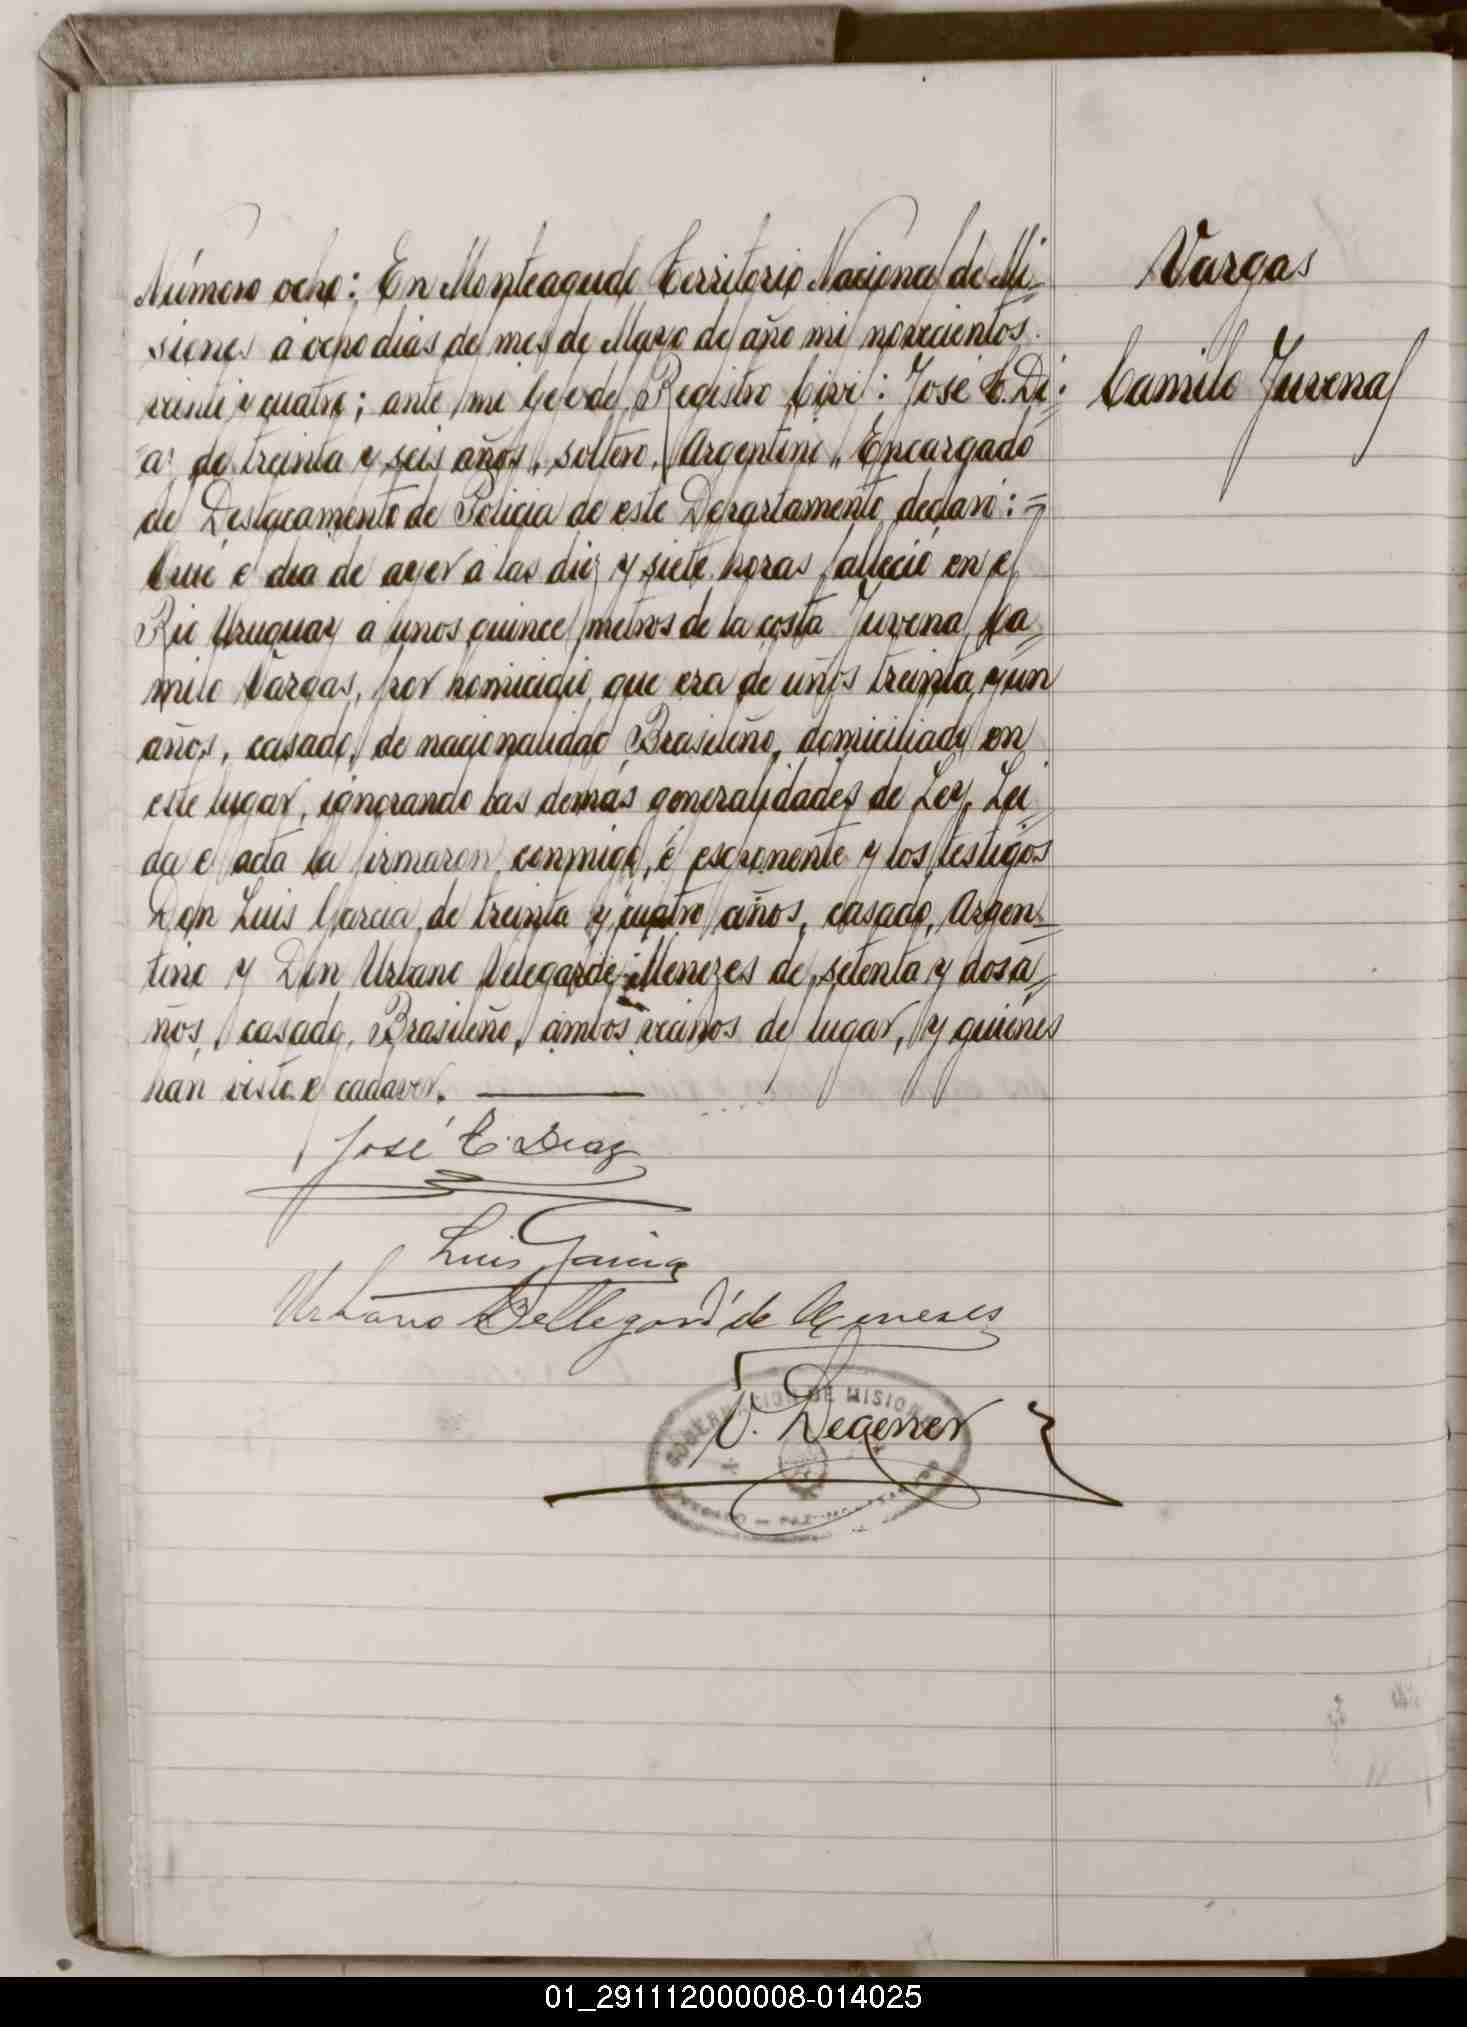 Número ocho: En Monteagudo Territorio Nacional de Mi
siones á ocho dias del mes de Mayo del año mil novecientos
veinti y cuatro; ante mi Gefe del Registro Civil: José E. Di
az de treinta y seis años, soltero, Argentino, Encargado
del Destacamento de Policia de este Departamento, declaró: =
Que el dia de ayer á las diez y siete horas falleció en el
Rio Uruguay á unos quince metros de la costa Juvenal Ca
milo Vargas, por homicidio, que era de unos treinta y un
años, casado, de nacionalidad Brasileño, domiciliado en
este lugar, ignorando las demás generalidades de Ley. Lei
da el acta la firmaron conmigo, el esponente y los testigos
Don Luis Garcia, de treinta y cuatro años, casado, Argen-
tino y Don Urbano Velegarde Menezes de setenta y dos a
ños, casado, Brasileño, ambos vecinos del lugar, y quienes
han visto el cadaver.
Vargas
Camilo Juvenal
José E. Diaz
Luis Garcia
Urbano Bellegard de Menezes
V. Degener
GOBERNACION DE MISIONES
01_291112000008-014025